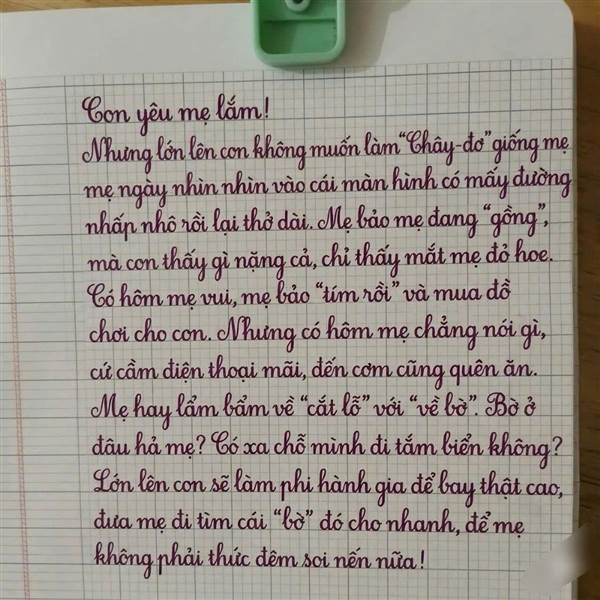 Con yêu mẹ lắm!
Nhưng lớn lên con không muốn làm "Chây-đơ" giống mẹ
mẹ ngày nhìn nhìn vào cái màn hình có mấy đường
nhấp nhô rồi lại thở dài. Mẹ bảo mẹ đang "gồng",
mà con thấy gì nặng cả, chỉ thấy mắt mẹ đỏ hoe.
Có hôm mẹ vui, mẹ bảo "tím rồi" và mua đồ
chơi cho con. Nhưng có hôm mẹ chẳng nói gì,
cứ cầm điện thoại mãi, đến cơm cũng quên ăn.
Mẹ hay lẩm bẩm về "cắt lỗ" với "về bờ". Bờ ở
đâu hả mẹ? Có xa chỗ mình đi tắm biển không?
Lớn lên con sẽ làm phi hành gia để bay thật cao,
đưa mẹ đi tìm cái "bờ" đó cho nhanh, để mẹ
không phải thức đêm soi nến nữa!